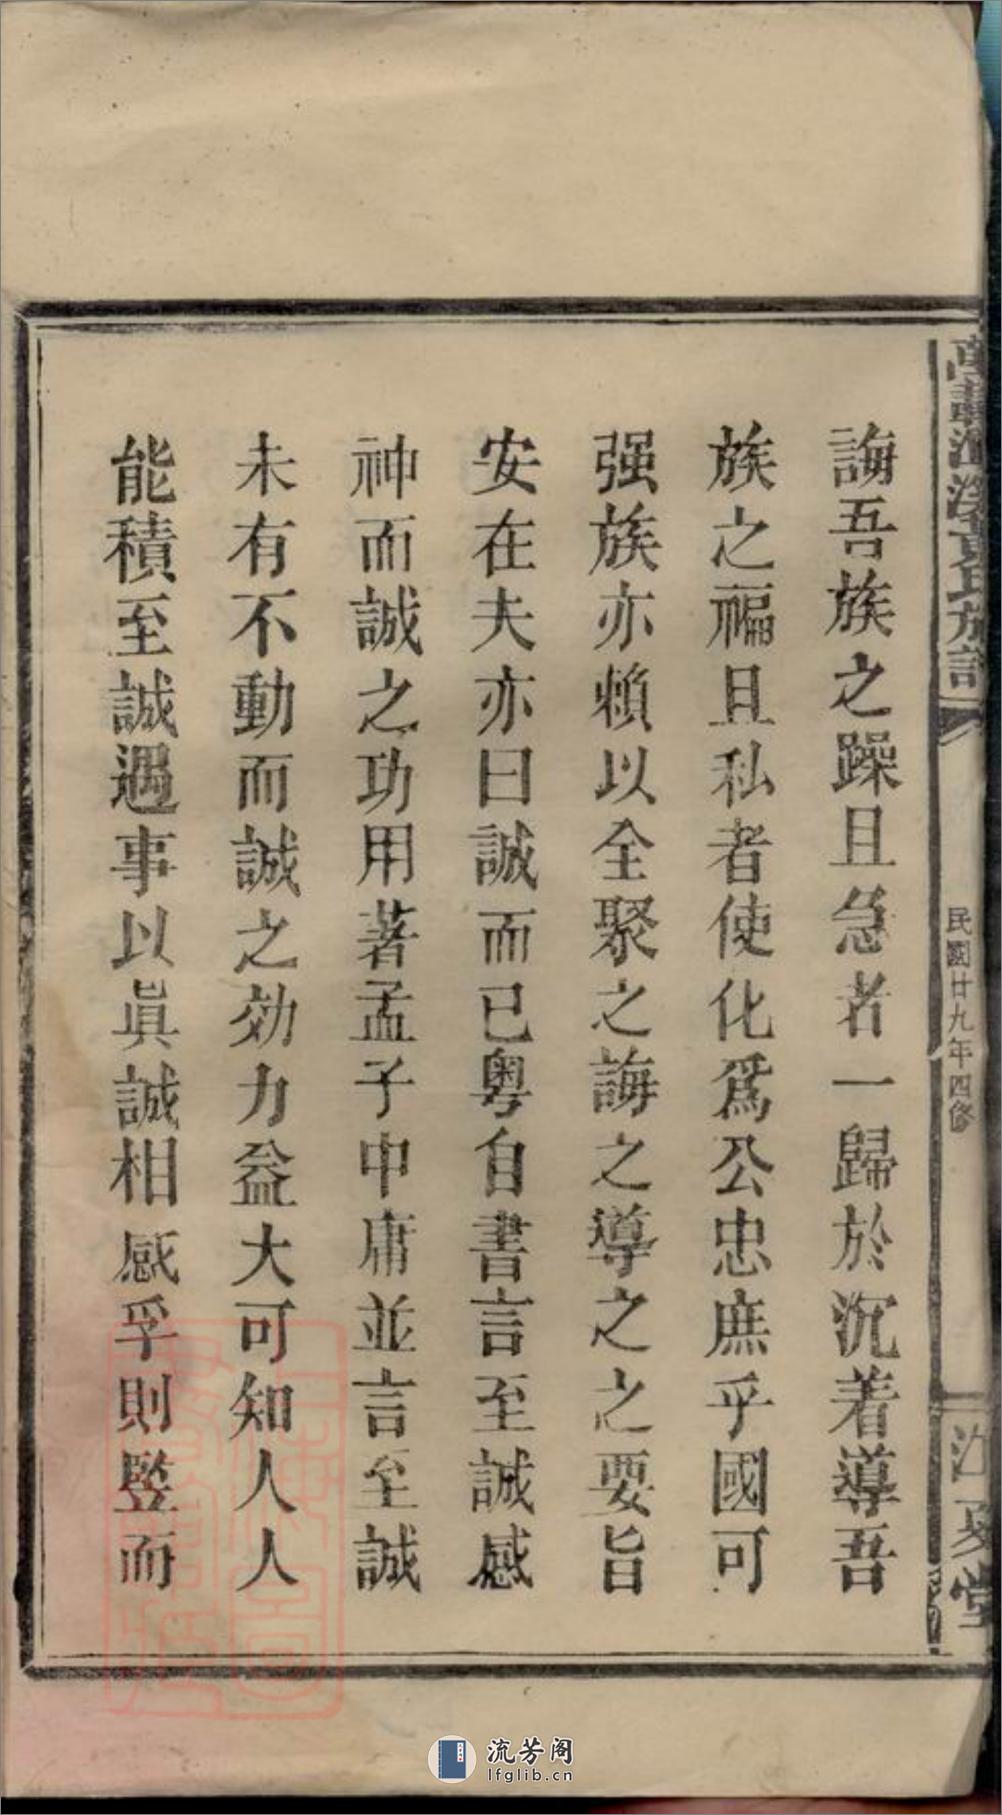 民國廿九年四修
誨吾族之躁且急者一歸於沉着導吾
族之福且私者使化爲公忠庶乎國可
强族亦賴以全聚之誨之導之之要旨
安在夫亦曰誠而已粤自書言至誠感
神而誠之功用著孟子中庸並言至誠
未有不動而誠之効力益大可知人人
能積至誠遇事以眞誠相感孚則竪而
江夏堂
流芳阁
lfglib.cn